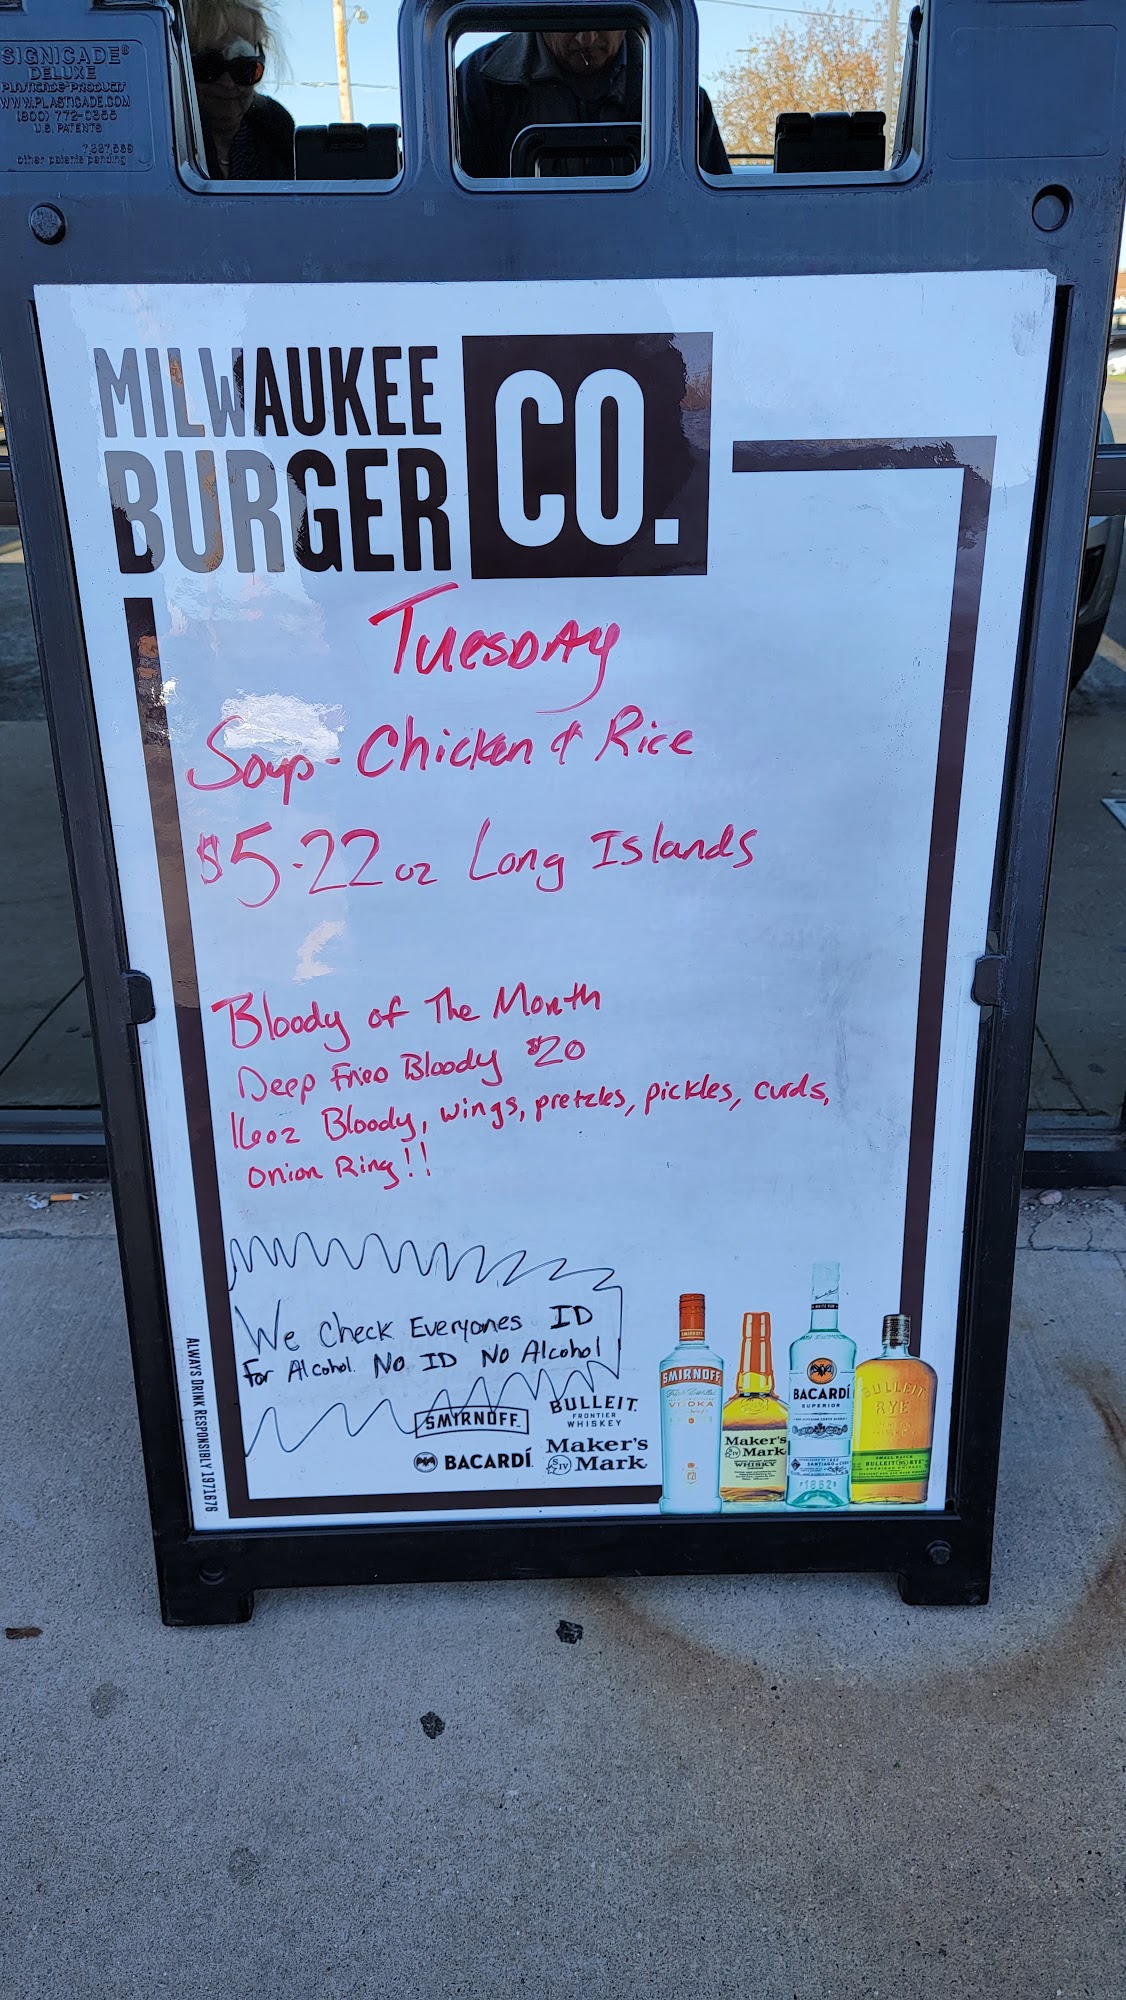 SIGNICADE®
DELUXE
PLASTICADE PRODUCTS
WWW.PLASTICADE.COM
(800) 772-0355
U.S. PATENTS
other patents pending
MILWAUKEE
BURGER CO.
Tuesday
Soup- Chicken & Rice
$5.22 oz Long Islands
Bloody of The Month
Deep Fried Bloody $20
16oz Bloody, wings, pretzles, pickles, curds,
Onion Ring!!
We Check Everyones ID
For Alcohol. No ID No Alcohol
SMIRNOFF
BULLEIT
FRONTIER
WHISKEY
BACARDÍ
Maker's
SIV Mark
ALWAYS DRINK RESPONSIBLY 1971676
SMIRNOFF
VODKA
Maker's
SIV Mark
WHISKY
BACARDÍ
SUPERIOR
1862
BULLEIT
RYE